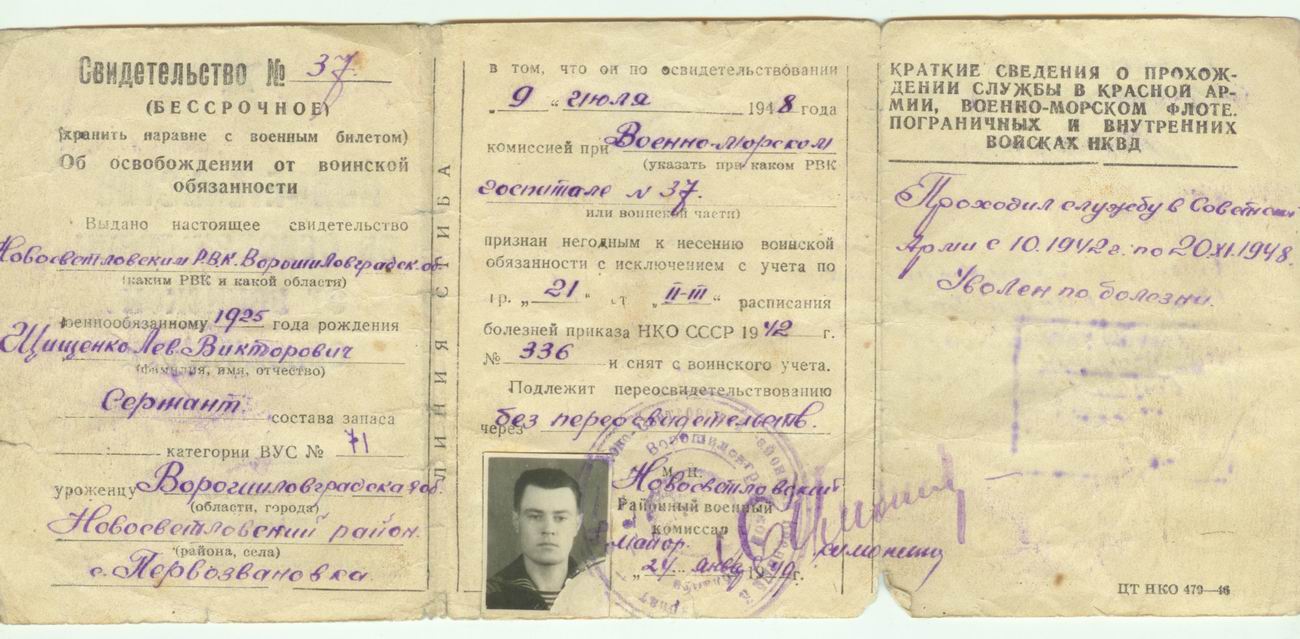 Свидетельство № 37
(БЕССРОЧНОЕ)
(хранить наравне с военным билетом)
Об освобождении от воинской
обязанности
Выдано настоящее свидетельство
Новосветловским РВК. Ворошиловградск. об.
(каким РВК и какой области)
военнообязанному 1925 года рождения
Лев Викторович
(фамилия, имя, отчество)
Сержант состава запаса
категории ВУС № 71
уроженцу Ворошиловградская об.
(области, города)
Новосветловский район
(района, села)
с. Первозвановка
ЛИНИЯ СГИБА
в том, что он по освидетельствовании
„9“ июля 1948 года
комиссией при Военно-морском
(указать при каком РВК
госпитале № 37.
или воинской части)
признан негодным к несению воинской
обязанности с исключением с учета по
гр. „21“ ст „II-III“ расписания
болезней приказа НКО СССР 1942 г.
№ 336 и снят с воинского учета.
Подлежит переосвидетельствованию
через без переосвидетельств.
М. П. Новосветловский
Районный военный
комиссар
Майор
„24“ янв 1949г.
КРАТКИЕ СВЕДЕНИЯ О ПРОХОЖ-
ДЕНИИ СЛУЖБЫ В КРАСНОЙ АР-
МИИ, ВОЕННО-МОРСКОМ ФЛОТЕ.
ПОГРАНИЧНЫХ И ВНУТРЕННИХ
ВОЙСКАХ НКВД
Проходил службу в Советской
Арми с 10.1942г. по 20.XI.1948.
Уволен по болезни.
ЦТ НКО 479—46